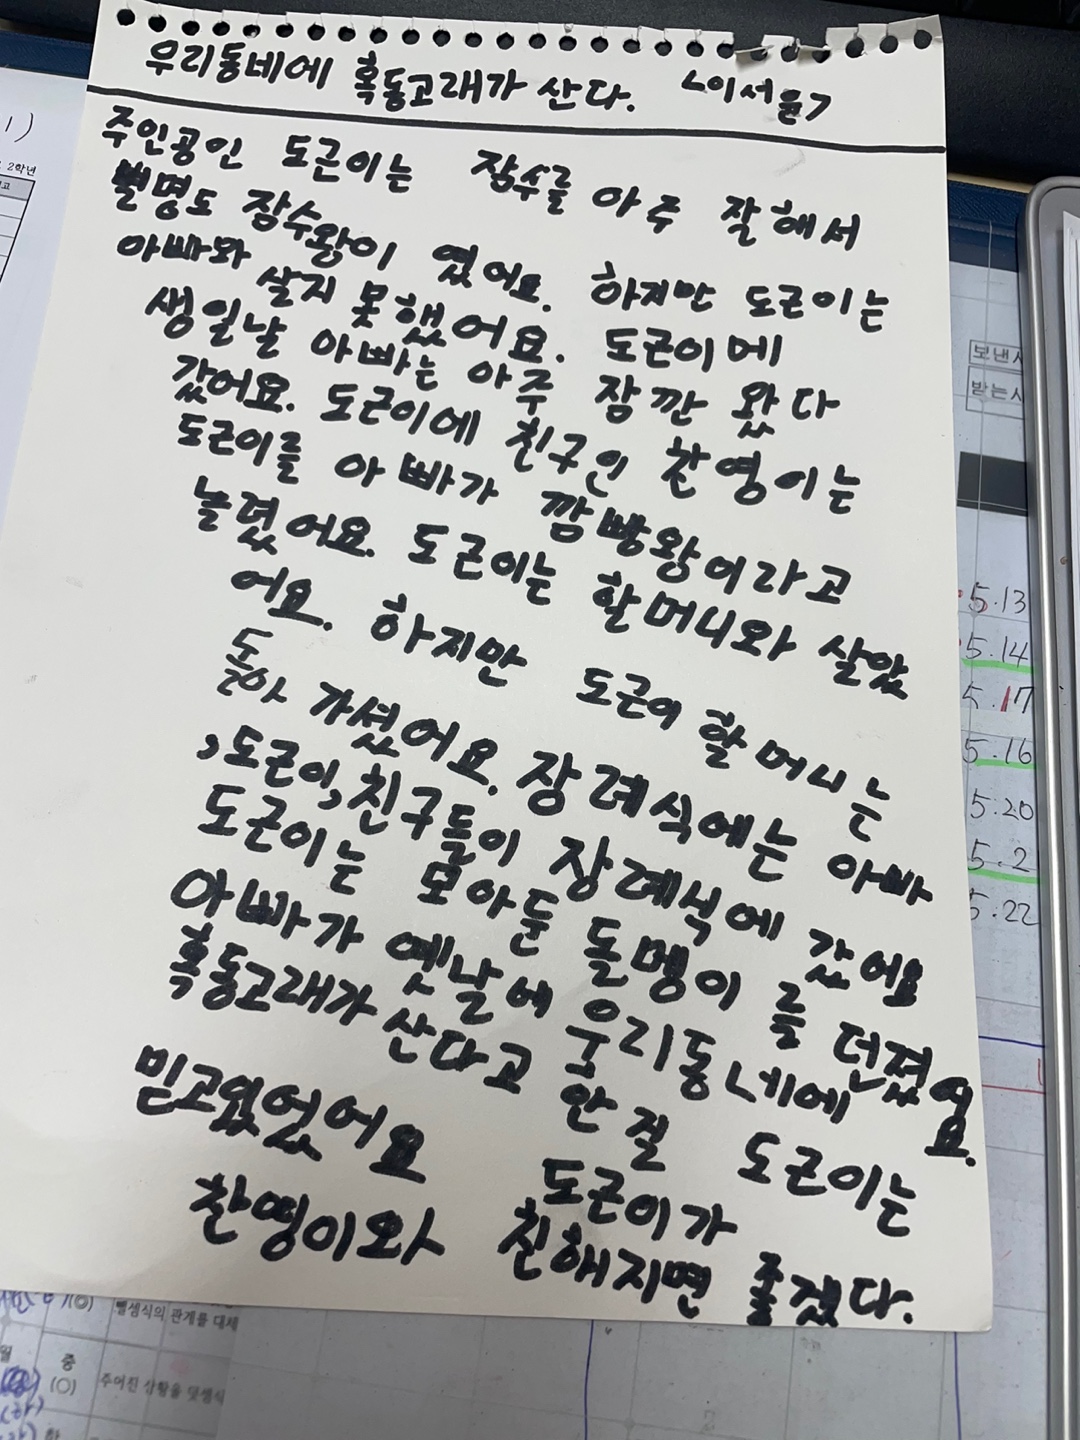 우리동네에 혹동고래가 산다. <이서윤>
주인공인 도근이는 잠수를 아주 잘해서
별명도 잠수왕이 였어요. 하지만 도근이는
아빠와 살지 못했어요. 도근이에
생일날 아빠는 아주 잠깐 왔다
갔어요. 도근이에 친구인 찬영이는
도근이를 아빠가 깜빵왕이라고
놀렸어요. 도근이는 할머니와 살았
어요. 하지만 도근이 할머니는
돌아 가셨어요. 장례식에는 아빠
,도근이,친구들이 장례식에 갔어요
도근이는 모아둔 돌멩이 를 던졌어요.
아빠가 옛날에 우리동네에
혹동고래가 산다고 안 걸 도근이는
믿고있었어요
도근이가
찬영이와 친해지면 좋겠다.
보낸
받는
2학년
1)
5.13
5.14
5.17
5.16
5.20
5.2
5.22
뺄셈식의 관계를 대세
중
(○)
주어진 상황을 덧셈식